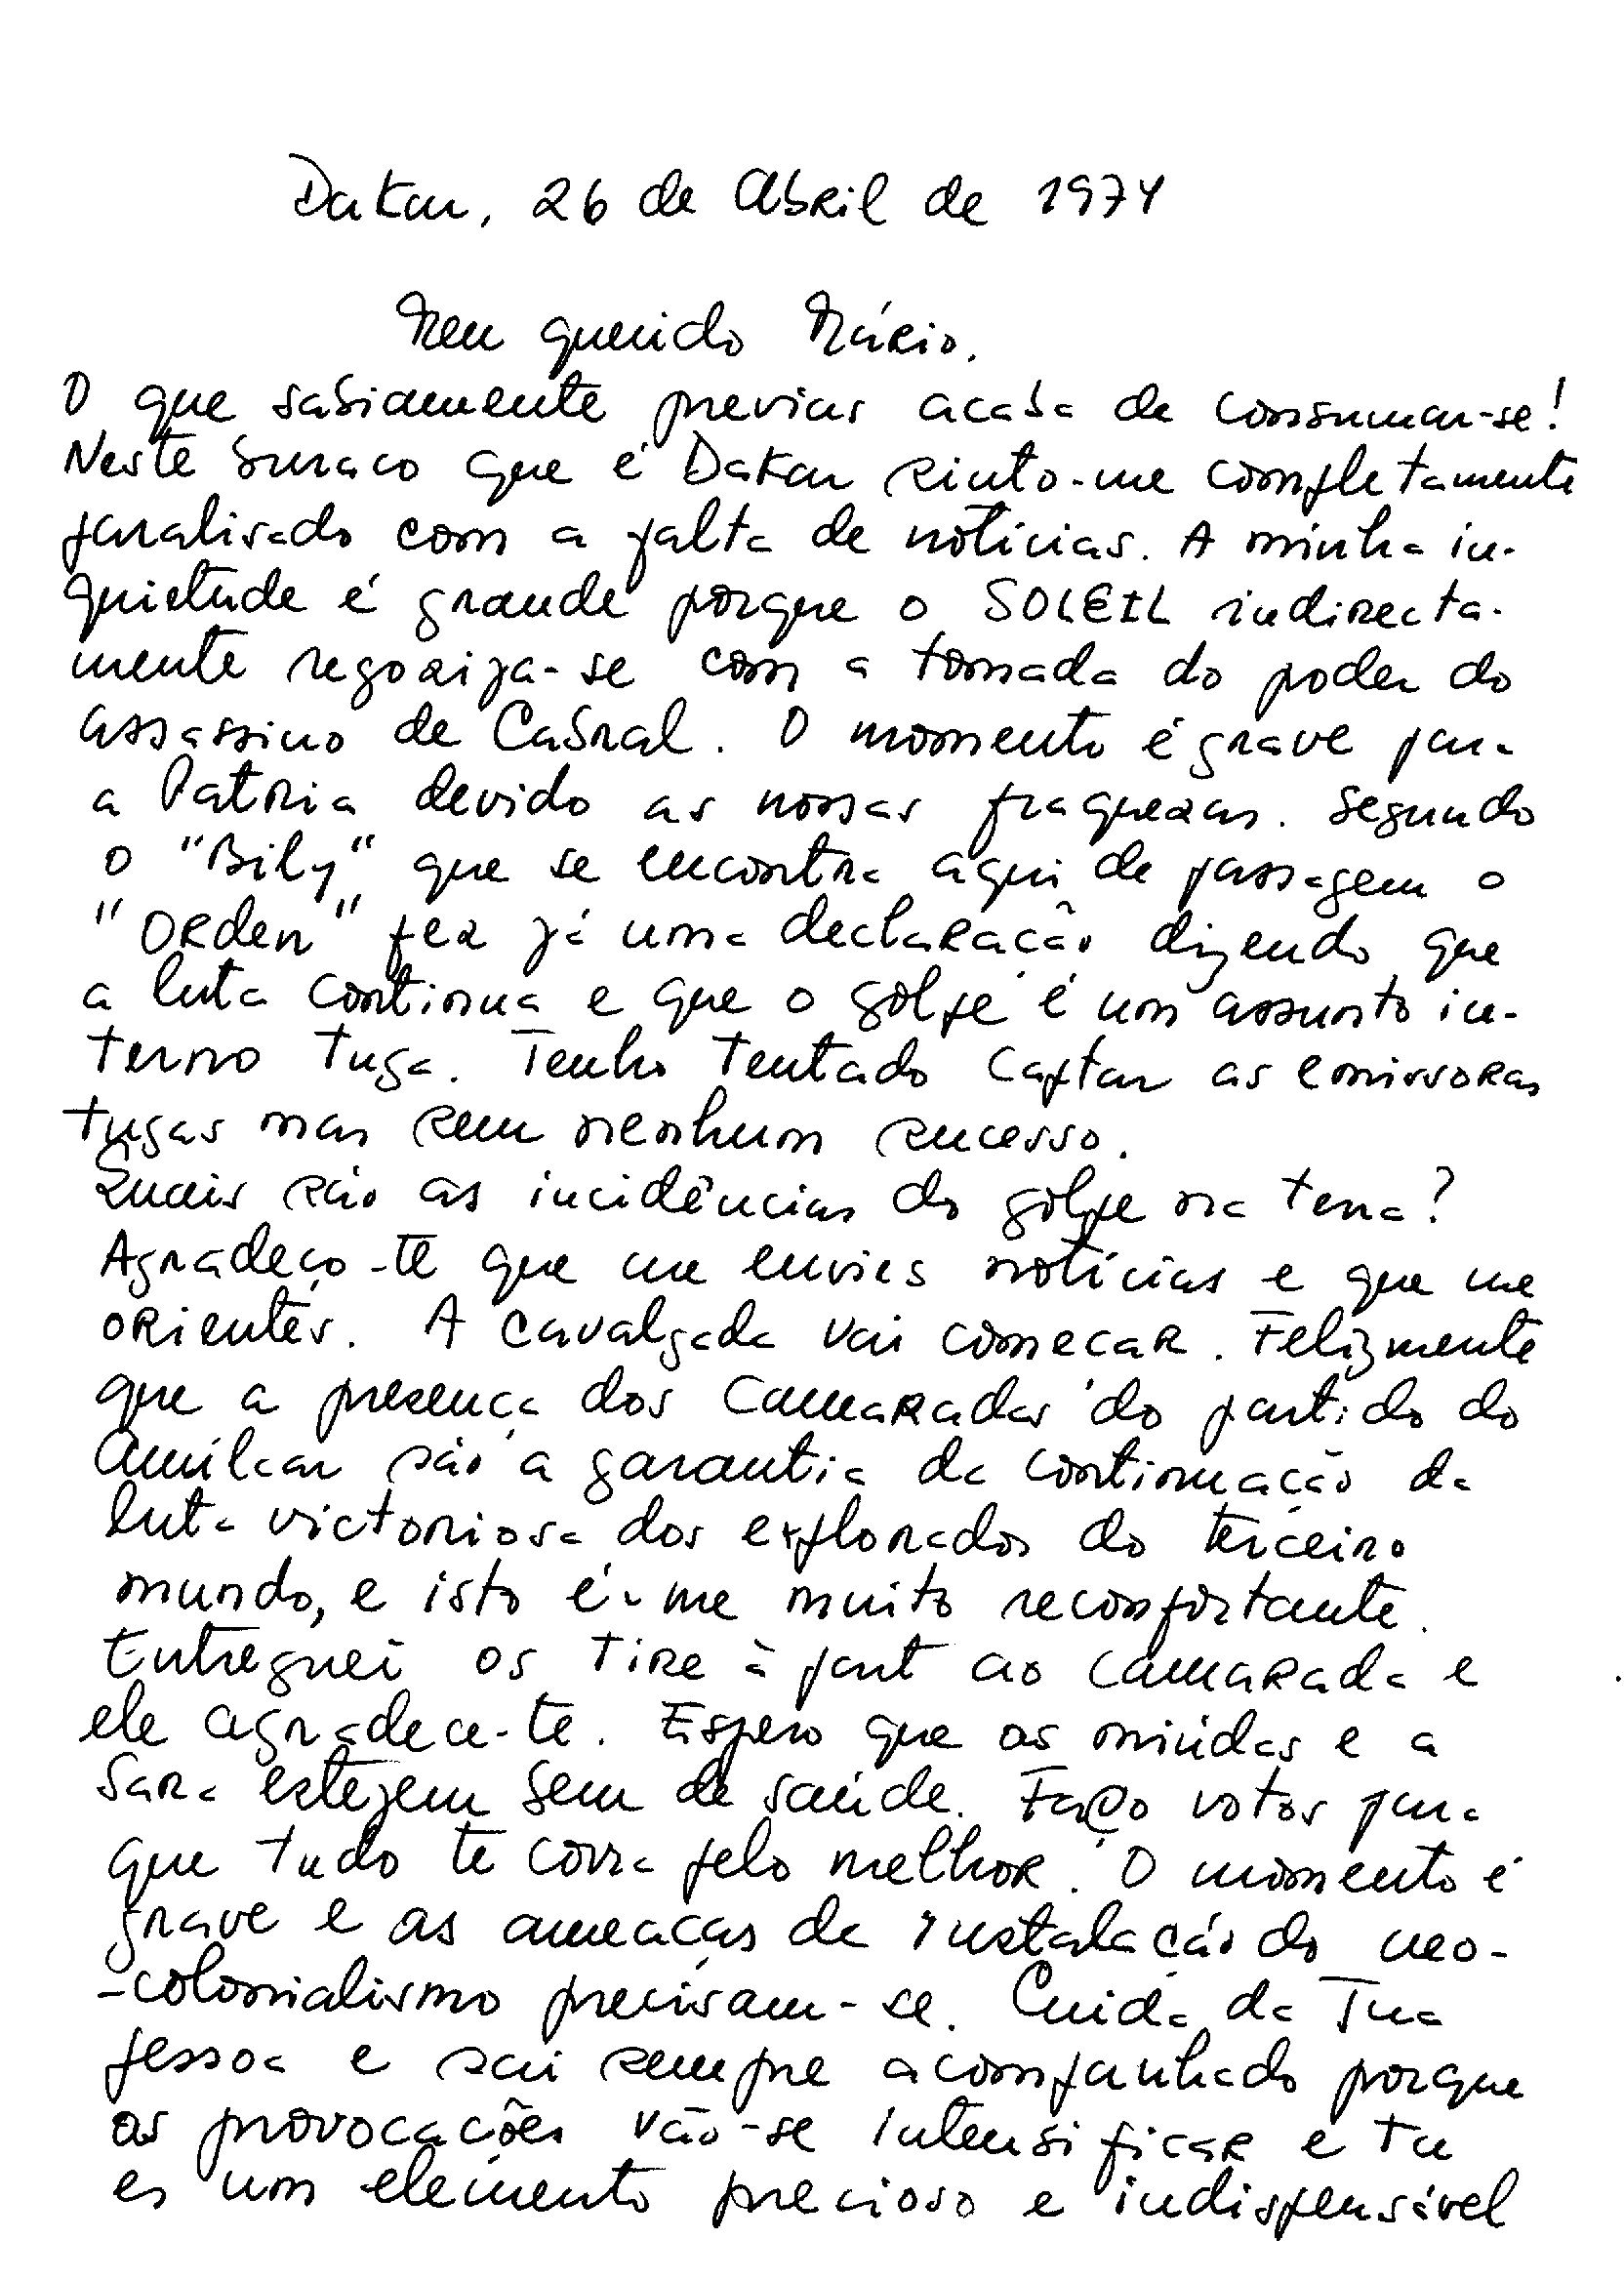 Dakar, 26 de Abril de 1974
Meu querido Mário.
O que sabiamente previas acaba de consumar-se!
Neste buraco que é Dakar sinto-me completamente
paralisado com a falta de notícias. A minha in-
quietude é grande porque o SOLEIL indirecta-
mente regozija-se com a tomada do poder do
assassino de Cabral. O momento é grave para
a Patria devido as nossas fraquezas. Segundo
o "Bily" que se encontra aqui de passagem o
"ORden" fez já uma declaração dizendo que
a luta continua e que o golpe é um assunto in-
terno tuga. Tenho tentado captar as emissoras
tugas mas sem nenhum sucesso.
Quais são as incidências do golpe na terra?
Agradeço-te que me envies notícias e que me
orientes. A cavalgada vai começar. Felizmente
que a presença dos camaradas do partido do
Amílcar são a garantia da continuação da
luta victoriosa dos explorados do terceiro
mundo, e isto é-me muito reconfortante.
Entreguei os tire à part ao camarada e
ele agradece-te. Espero que as miúdas e a
Sara estejem bem de saúde. Faço votos para
que tudo te corra pelo melhor. O momento é
grave e as ameaças da instalação do neo-
-colonialismo precisam-se. Cuida da Tua
pessoa e sai sempre acompanhado porque
as provocações vão-se intensificar e tu
es um elemento precioso e indispensável